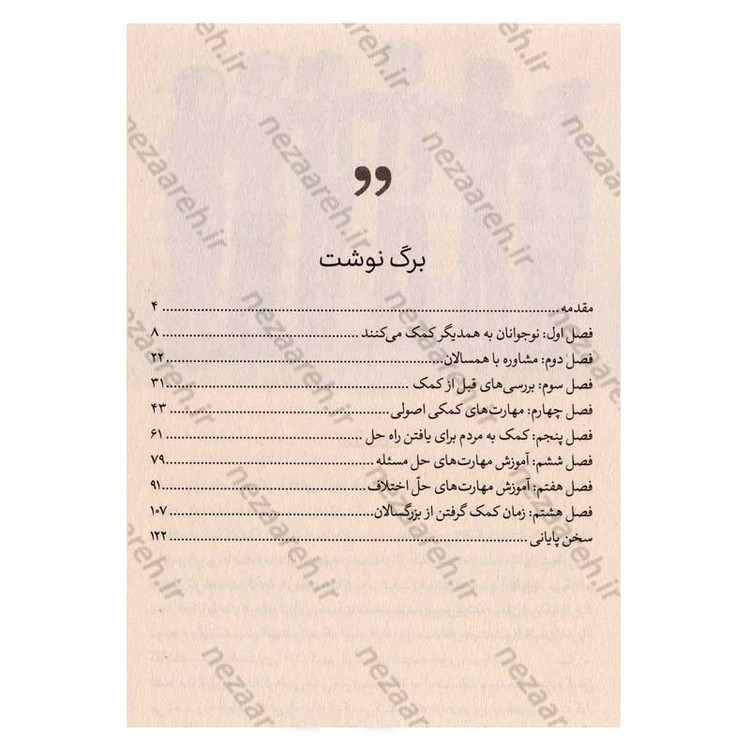 برگ نوشت
مقدمه ........ ۴
فصل اول: نوجوانان به همدیگر کمک می‌کنند ........ ۸
فصل دوم: مشاوره با همسالان ........ ۲۲
فصل سوم: بررسی‌های قبل از کمک ........ ۳۱
فصل چهارم: مهارت‌های کمکی اصولی ........ ۴۳
فصل پنجم: کمک به مردم برای یافتن راه حل ........ ۶۱
فصل ششم: آموزش مهارت‌های حل مسئله ........ ۷۹
فصل هفتم: آموزش مهارت‌های حلّ اختلاف ........ ۹۱
فصل هشتم: زمان کمک گرفتن از بزرگسالان ........ ۱۰۷
سخن پایانی ........ ۱۲۲
nezaareh.ir